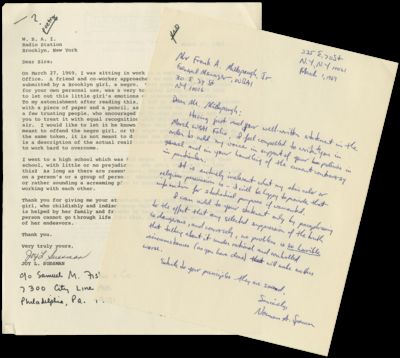 W. B. A. I.
Radio Station
Brooklyn, New York
Dear Sirs,
On March 27, 1969, I was sitting in work
Office. A friend and co-worker approache
submitted by a Brooklyn girl, a negro.
for your own personal use, was a very to
to let out this little girl's emotions
To my astonishment after reading this,
with a piece of paper and a pencil, as
a few trusting people, who encouraged
you to treat it with equal recognition
air. I would like to let it be known
meant to offend the negro girl, or th
the same token, it is not meant to d
is a description of the actual reali
to work hard to overcome.
I went to a high school which was
school, with little or no prejudic
this! As long as there are reason
on a person's or a group of person
or rather sending a screaming p
working with each other.
Thank you for giving me your at
girl, who childishly and indiec
is helped by her family and fr
person cannot go through life
of her endeavors.
Thank you.
Very truly yours,
JOY L. SUSSMAN
c/o Samuel M.
7300 City Line
Philadelphia, Pa.
225 E. 70 St
N.Y. N.Y. 10021
March 1, 1969
Mr Frank A. Millspaugh, Jr
General Manager, WBAI
30 E. 39 St
NY 10016
Dear Mr. Millspaugh:
Having just read your well-written statement in the
March WBAI Folio, I feel compelled to write you in
order to add my voice in support of your base policies in
general and in your handling of the current controversy
in particular.
It is entirely irrelevant what my skin color or
religious persuasion is - I will be happy to provide that
information for statistical purposes if requested.
I can add to your statement only by paraphrasing
to the effect that any selected suppression of the truth
is dangerous; and conversely, no problem is so horrible
that talking about it under rational and controlled
circumstances (as you have done) that will make matters
worse.
Stick to your principles they are sound.
Sincerely,
Norman A.